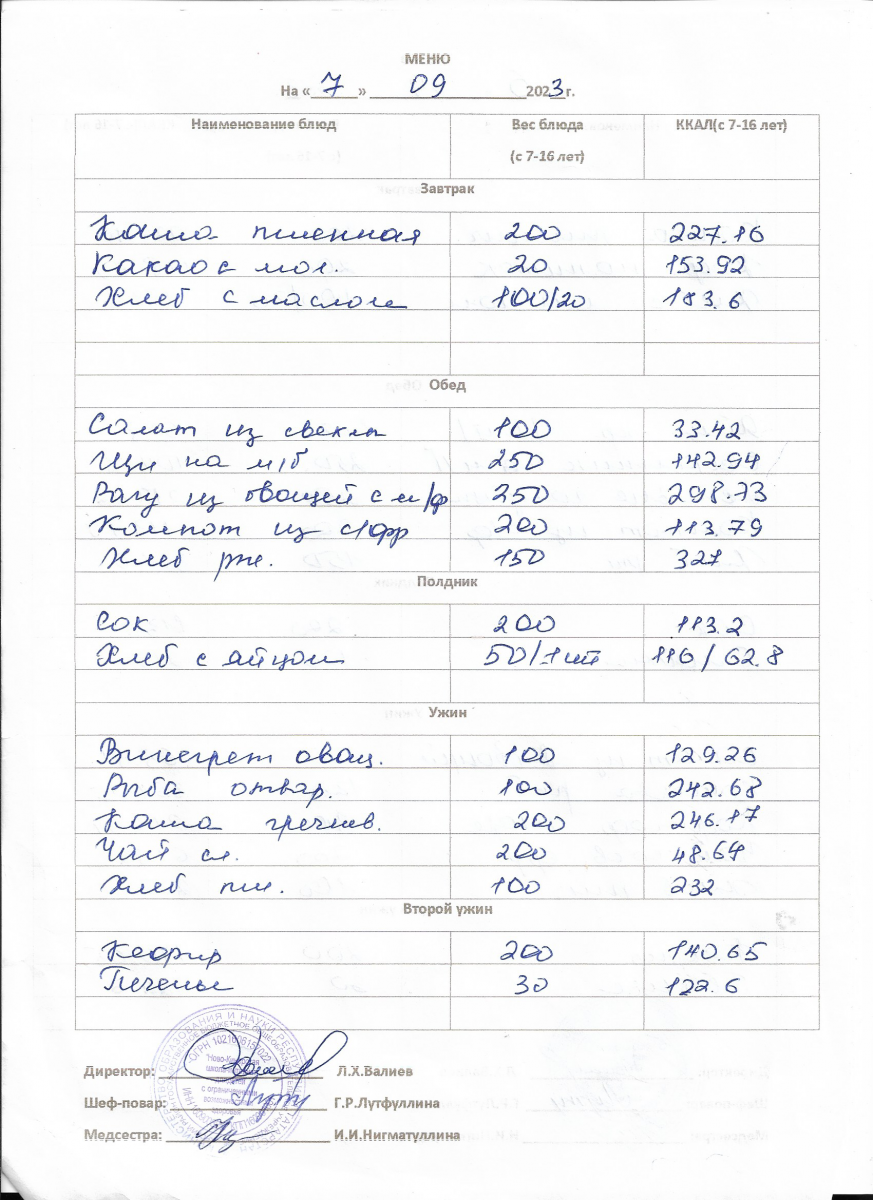 МЕНЮ
На « 7 » 09 2023 г.
Наименование блюд Вес блюда (с 7-16 лет) ККАЛ(с 7-16 лет)
Завтрак
Каша пшенная 200 227.16
Какао с мол. 20 153.92
Хлеб с маслом 100/20 183.6
Обед
Салат из свеклы 100 33.42
Щи на м/б 250 142.94
Рагу из овощей с м/ф 250 298.73
Компот из с/фр 200 113.79
Хлеб рж. 150 327
Полдник
Сок 200 113.2
Хлеб с яйцом 50/1шт 116 / 62.8
Ужин
Винегрет овощ. 100 129.26
Рыба отвар. 100 242.68
Каша гречнев. 200 246.17
Чай сл. 200 48.64
Хлеб пш. 100 232
Второй ужин
Кефир 200 140.65
Печенье 30 122.6
Директор: Л.Х.Валиев
Шеф-повар: Г.Р.Лутфуллина
Медсестра: И.И.Нигматуллина